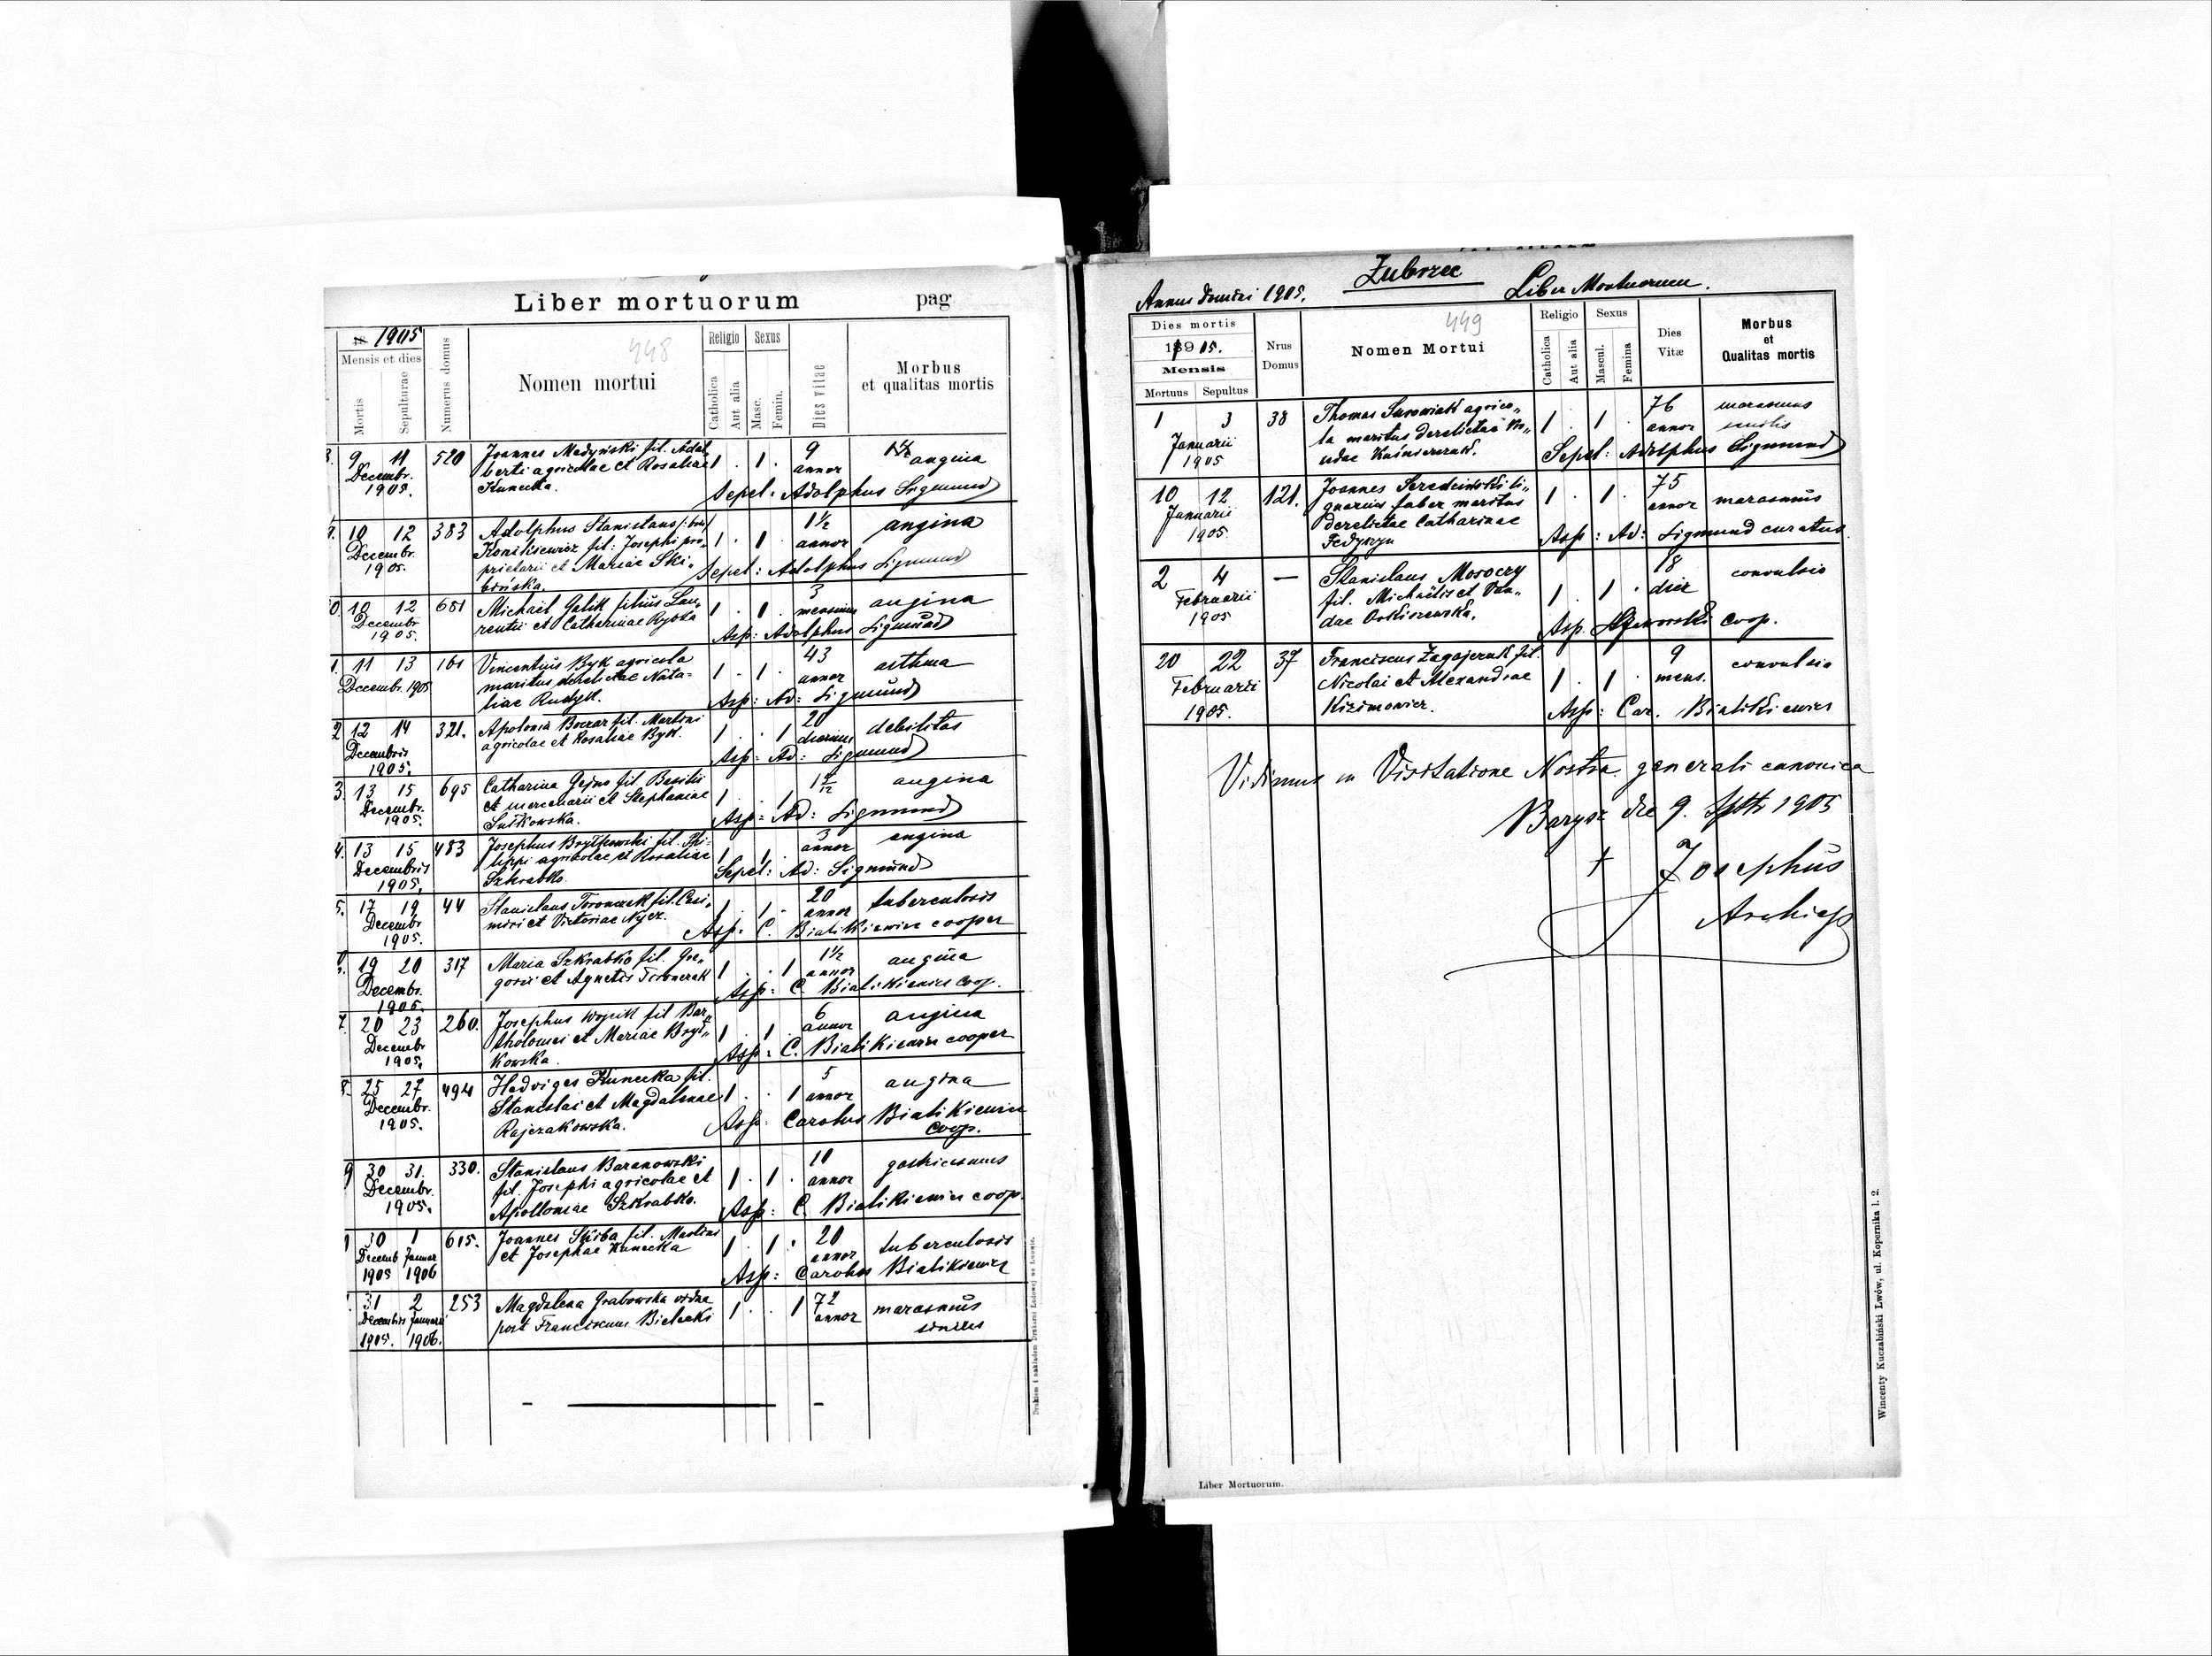 Liber mortuorum pag
1905
Mensis et dies
Mortis
Sepulturae
Numerus domus
448
Nomen mortui
Religio
Catholica
Aut alia
Sexus
Masc.
Femin.
Dies vitae
Morbus
et qualitas mortis
9 11 520 Joannes Madyński fil. Adal
Decembr. berti agricolae et Rosaliae 1 . 1 . 9 annor angina
1905. Kunecka.
Sepel: Adolphus Sigmund
10 12 383 Adolphus Stanislaus
Decembr. Konikiewicz fil: Josephi pro- 1 . 1 . 1½ annor angina
1905. prietarii et Mariae Ski-
bińska.
Sepel: Adolphus Sigmund
10 12 681 Michael Galik filius Lau-
Decembr. rentii et Catharinae Ryska 1 . 1 . 3 mensium angina
1905.
Asp: Adolphus Sigmund
11 13 161 Vincentius Byk agricola
Decembr. 1905 maritus derelictae Nata- 1 . 1 . 43 annor asthma
liae Rudyk.
Asp: Ad: Sigmund
2 12 14 321. Apolonia Boczar fil. Martini
Decembris agricolae et Rosaliae Byk. 1 . . 1 20 dierum debilitas
1905.
Asp: Ad: Sigmund
3. 13 15 695 Catharina Gejno fil. Basilii
Decembr. et mercenarii et Stephaniae 1 . . 1 angina
1905. Sutkowska.
Asp: Ad: Sigmund
4. 13 15 483 Josephus Brytkowski fil. Phi-
Decembris lippi agricolae et Rosaliae 1 . 1 . 3 annor angina
1905. Szkrabko.
Sepel: Ad: Sigmund
5. 17 19 44 Stanislaus Toronczak fil. Casi-
Decembr miri et Victoriae Nycz. 1 . 1 . 20 annor tuberculosis
1905.
Asp. C. Bialikiewicz cooper
19 20 317 Maria Szkrabko fil. Gre-
Decembr. gorii et Agnetis Toronczak 1 . . 1 1½ annor angina
1905.
Asp: C. Bialikiewicz coop.
7. 20 23 260. Josephus Wojcik fil Bar-
Decembr tholomei et Mariae Bryt- 1 . 1 . 6 annor angina
1905. kowska.
Asp: C. Bialikiewicz cooper
8. 25 27 494 Hedviges Kunecka fil.
Decembr. Stanislai et Magdalenae 1 . . 1 5 annor angina
1905. Rajczakowska.
Asp: Carolus Bialikiewicz
coop.
9 30 31. 330. Stanislaus Baranowski
Decembr. fil. Josephi agricolae et 1 . 1 . annor gastricismus
1905. Apolloniae Szkrabko.
Asp: C. Bialikiewicz coop.
30 1 615. Joannes Skiba fil. Martini
Decemb Januar et Josephae Kunecka 1 . 1 . 20 annor tuberculosis
1905 1906
Asp: Carolus Bialikiewicz
31 2 253 Magdalena Grabowska vidua
Decembris Januarii post Franciscum Bielecki 1 . . 1 72 annor marasmus
1905. 1906. senilis
Drukiem i nakładem Drukarni Ludowej we Lwowie.
Zubrzec
Annus domini 1905. Liber Mortuorum.
Dies mortis
1905.
Mensis
Mortuus Sepultus
Nrus
Domus
449
Nomen Mortui
Religio
Catholica
Aut alia
Sexus
Mascul.
Femina
Dies
Vitæ
Morbus
et
Qualitas mortis
1 3 38 Thomas Surowiak agrico-
Januarii la maritus derelictae 1 . 1 . 76 annor marasmus senilis
1905 Kuśnierczuk.
Sepel: Adolphus Sigmund
10 12 121. Joannes Seredziński li-
Januarii gnarius faber maritus 1 . 1 . 75 annor marasmus
1905. derelictae Catharinae
Fedyszyn
Asp: Ad: Sigmund curatus
2 4 — Stanislaus Moroczy
Februarii fil. Michaëlis et Van- 1 . 1 . 18 dier convulsio
1905 dae
Asp. coop.
20 22 37 Franciscus Zagajczuk fil.
Februarii Nicolai et Alexandrae 1 . 1 . 9 mens. convulsio
1905. Kizimowicz.
Asp: Car. Bialikiewicz
Vidimus in Visitatione Nostra generali canonica
Barysz die 9. Sptb 1905
† Josephus
Archiep
Liber Mortuorum.
Wincenty Kuczabiński Lwów, ul. Kopernika l. 2.